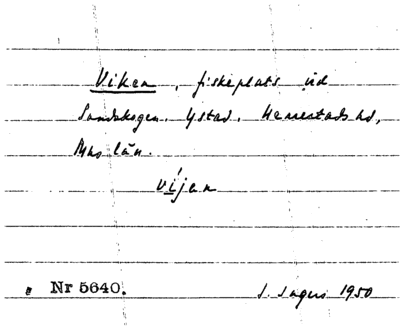 Viken, fiskeplats vid
Sandskogen. Ystad. Herrestads hd,
Mhs län.
víjen
Nr 5640.
1950